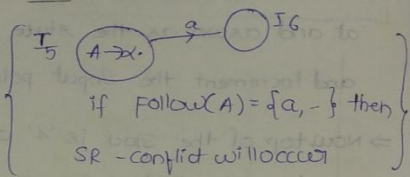 I5 A→α. a I6
if Follow(A) = {a, -} then
SR - conflict will occcur